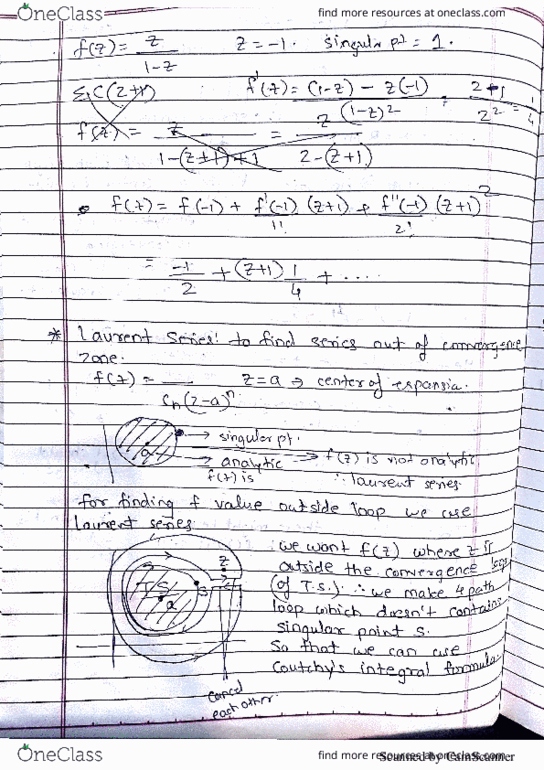 OneClass
find more resources at oneclass.com
f(z) = z / 1-z   z = -1.   singular pt = 1.
Σ C (z+1)   f'(z) = (1-z) - z(-1) / (1-z)²   = 1/4
f(z) = z / 1-(z+1)+1 = z / 2-(z+1)
• f(z) = f(-1) + f'(-1)/1! (z+1) + f''(-1)/2! (z+1)²
= -1/2 + (z+1) 1/4 + ....
* Laurent Series: to find series out of convergence
zone.
f(z) = __   z=a ⇒ center of expansia.
Cn(z-a)ⁿ
→ singular pt.
a → analytic → f(z) is not analytic
f(z) is ∴ laurent series.
for finding f value outside loop we use
laurent series
we want f(z) where z is
outside the convergence
(of T.S.) ∴ we make a path
loop which doesn't contain
singular point s.
So that we can use
Coutchy's integral formula
z
T.S.
s
a
cancel
each other.
OneClass
find more resources at oneclass.com
Scanned by CamScanner